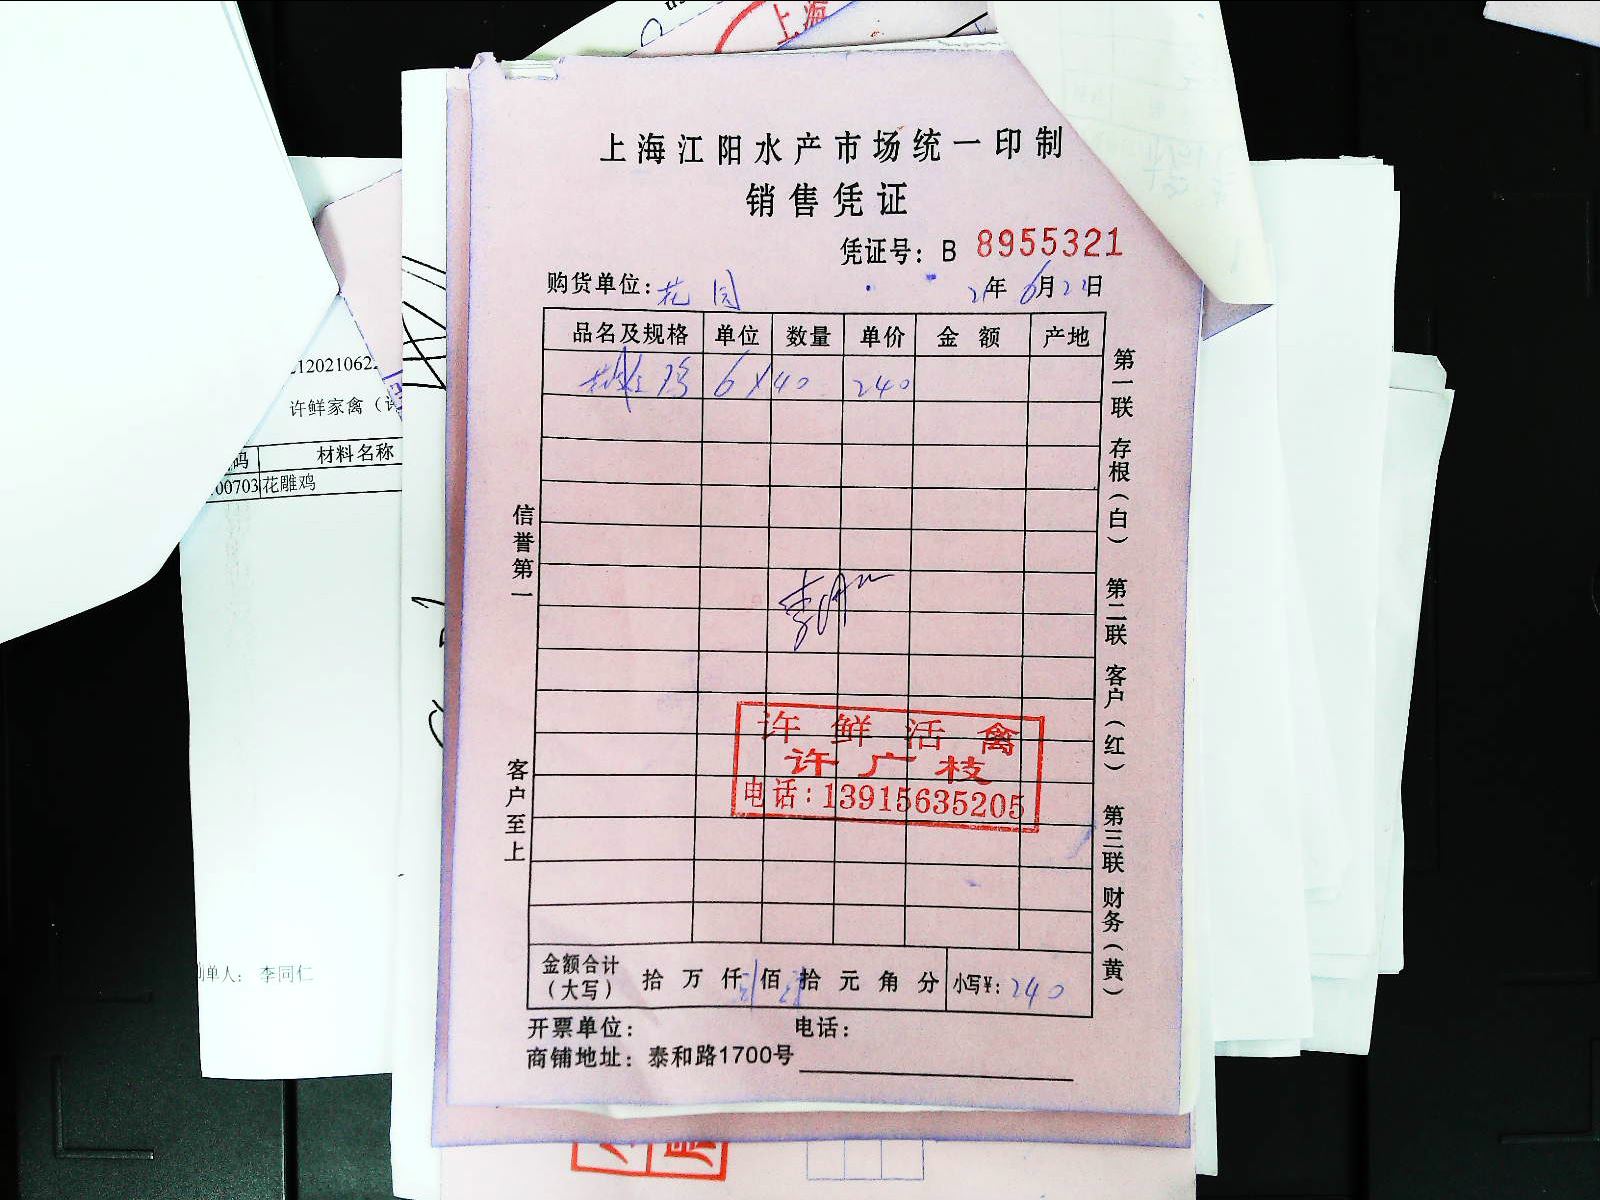 上海
上海江阳水产市场统一印制
销售凭证
凭证号：B 8955321
购货单位：花园 21年6月22日
品名及规格 单位 数量 单价 金额 产地
花雕鸡 6×40 240
信誉第一
客户至上
第一联 存根（白） 第二联 客户（红） 第三联 财务（黄）
许鲜活禽
许广枝
电话：13915635205
金额合计（大写） 拾 万 仟 佰 拾 元 角 分 小写¥：240
开票单位： 电话：
商铺地址：泰和路1700号
许鲜家禽
码 材料名称
00703 花雕鸡
单人： 李同仁